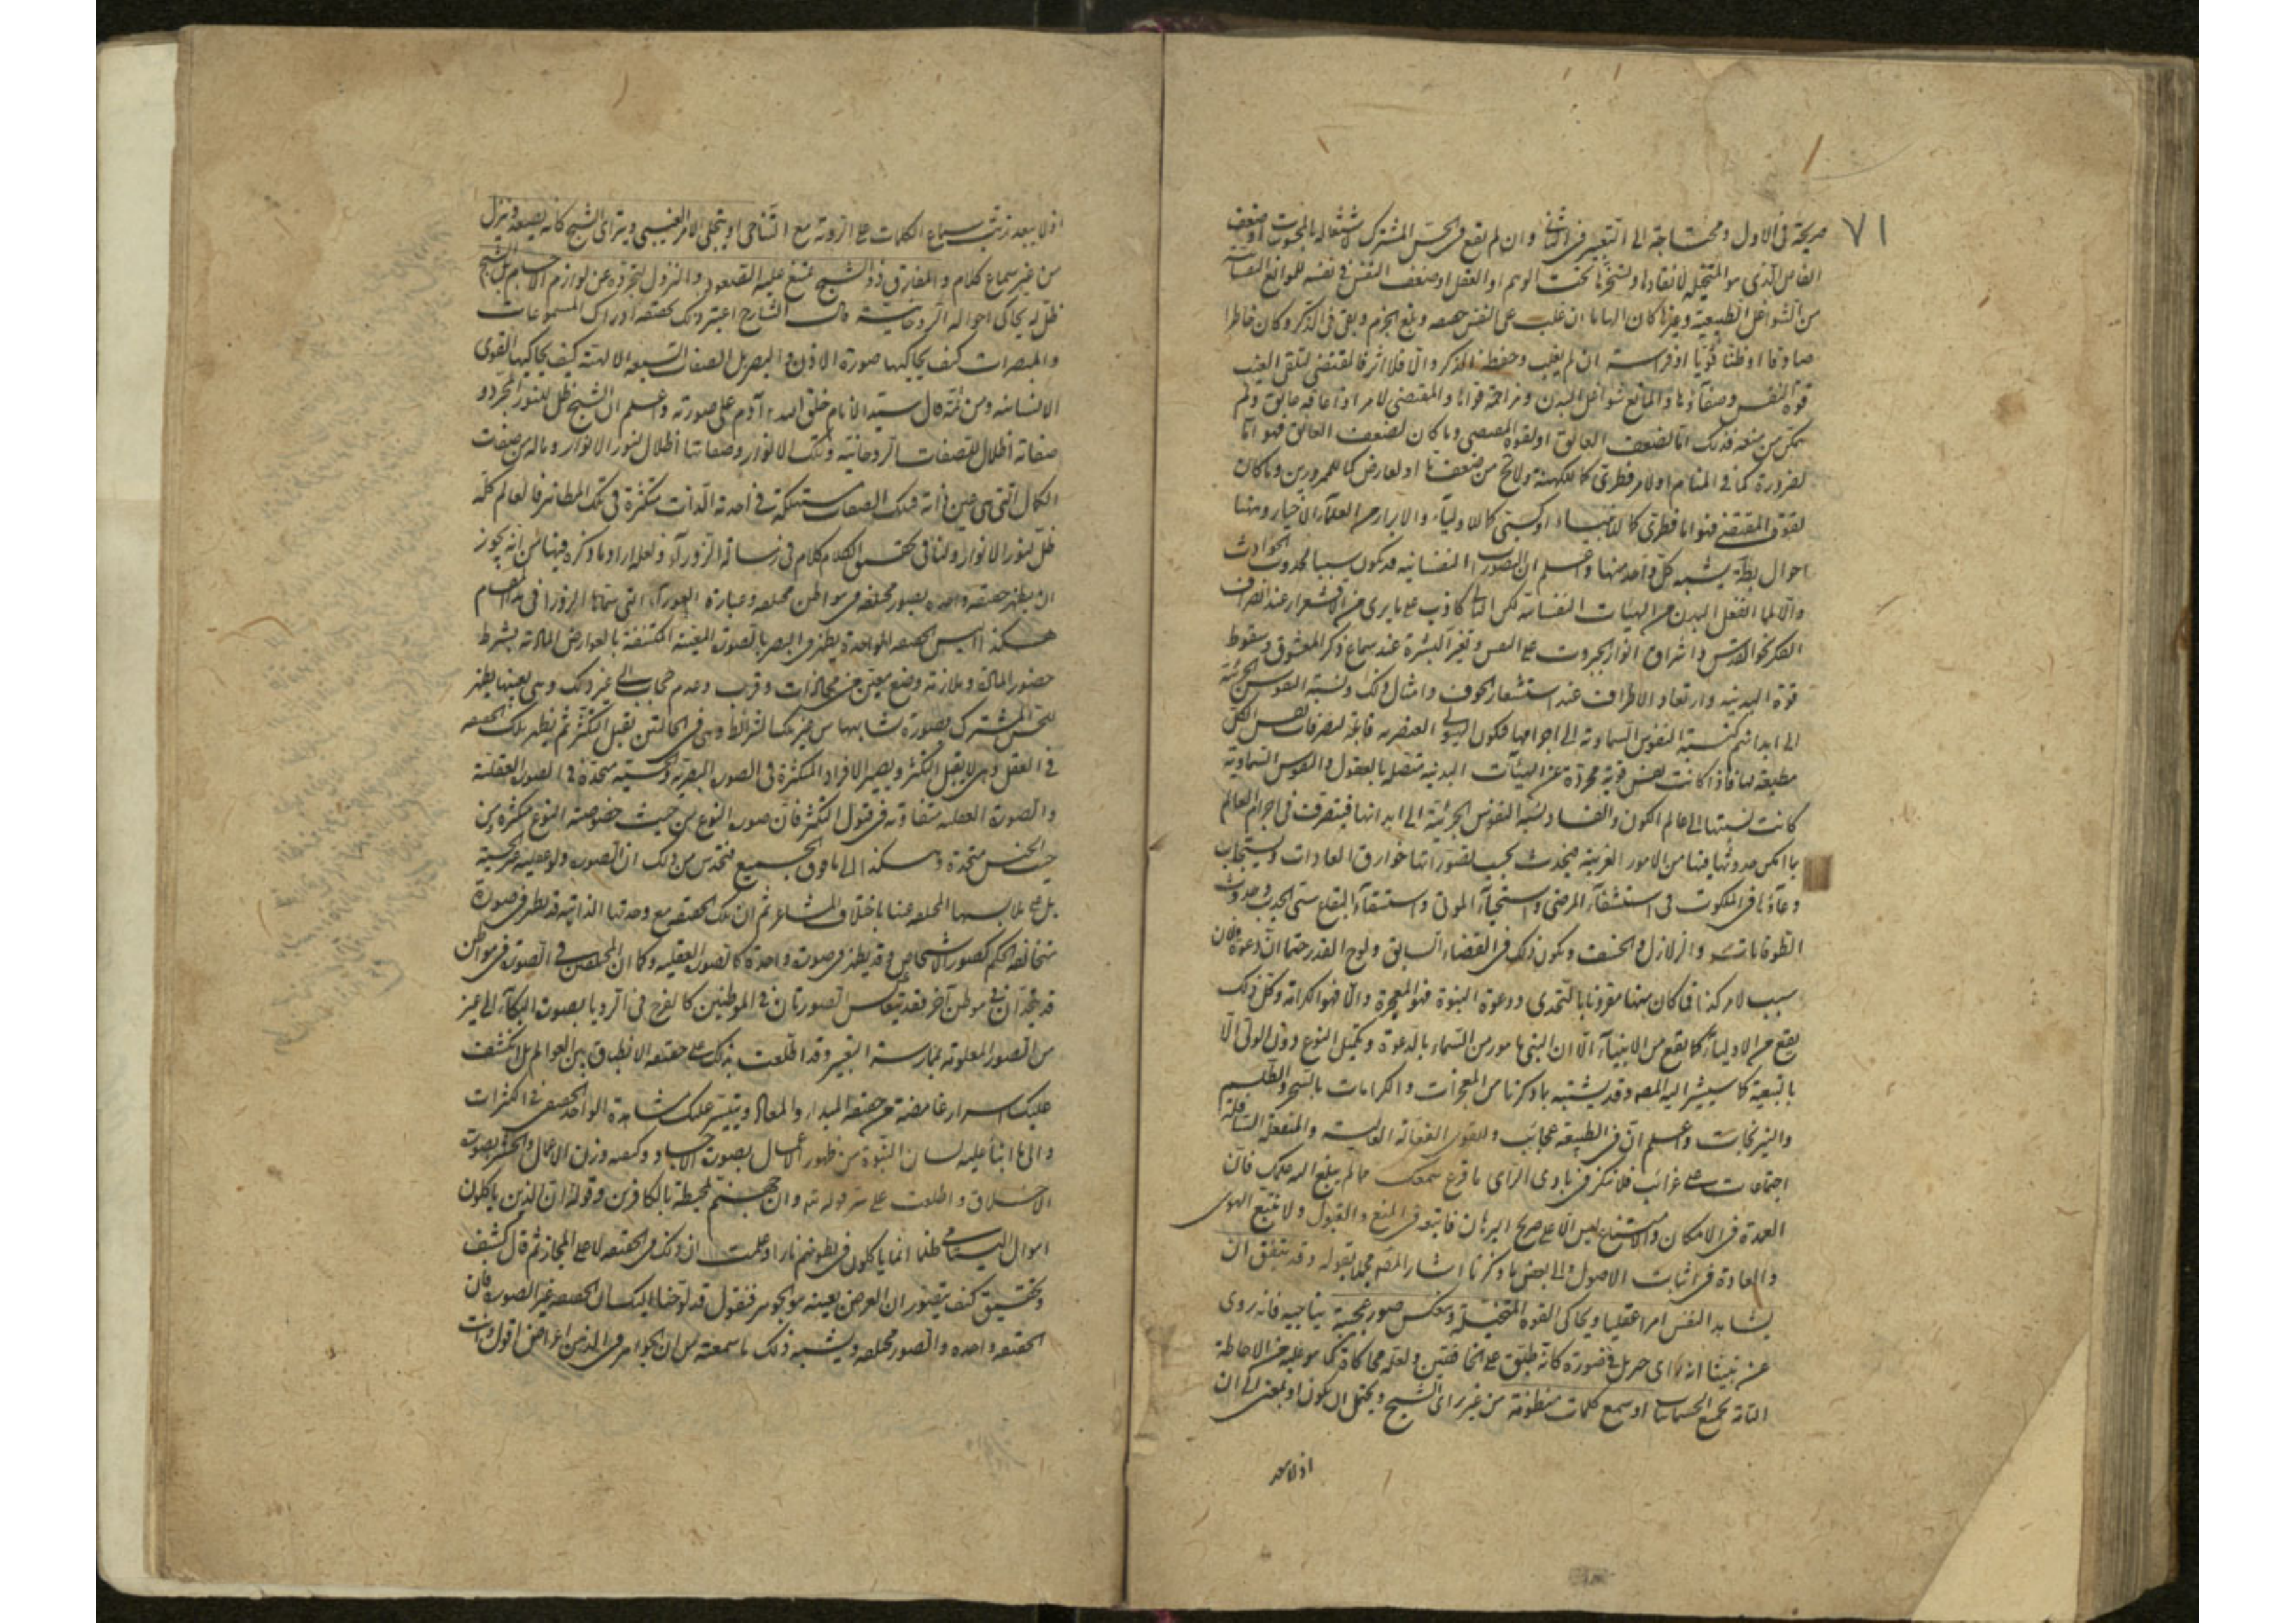 ٧١
صريحة فى الاول ومحتاجة الى التعبير فى الثانى وان لم يقع فى الحس المشترك لاشتغاله بالمحسوسات او ضعف
الفاعل الذى هو المتخيلة لانقيادها وتسخرها تحت الوهم او العقل او ضعف النفس فى نفسه للموانع النفسانية
من الشواغل الطبيعية وغيرها كان الهاما ان غلب على النفس وبلغ الجزم وبقى فى الذكر وكان خاطرا
صادقا او ظنا قويا او فراسة ان لم يغلب وحفظه الذكر والا فلا اثر فالمقتضى لتلقى الغيب
قوة النفس وصفاؤها والمانع شواغل البدن ومزاحمة قواها والمقتضى لامر اذا عاقه عايق ولم
يمكن من منعه فذلك اما لضعف العائق او لقوة المقتضى وما كان لضعف العائق فهو اما
لضرورة كما فى المنام او لامر فطرى كما للكهنة من ضعفها او لعارض كما للممرورين وما كان
لقوة المقتضى فهو اما فطرى كما للانبياء او كسبى كما للاولياء والابرار من العلماء الاخيار ومنها
احوال يشبه كل واحد منها واعلم ان التصورات النفسانية قد تكون سببا لحدوث الحوادث
والا لما انفعل البدن من الهيئات النفسانية لكن التالى كاذب على ما يرى من الاقشعرار عند انصراف
الفكر نحو القدس واشراق انوار الجبروت على النفس وتغير البشرة عند سماع ذكر المعشوق وسقوط
قوة البدنية وارتعاد الاطراف عند استشعار الخوف وامثال ذلك ونسبة النفوس الجزئية
الى ابدانهم كنسبة النفوس السماوية الى اجرامها فيكون الهيولى العنصرية قابلة لتصرفات نفس الكل
مطيعة لها فاذا كانت نفس قوية مجردة عن الهيئات البدنية متصلة بالعقول والنفوس السماوية
كانت نسبتها الى عالم الكون والفساد نسبة النفوس الجزئية الى ابدانها فيتصرف فى اجرام العالم
بما امكن حدوثها فيها من الامور الغريبة فيحدث بحسب تصوراتها خوارق العادات ويستجاب
دعاؤها فى الملكوت فى استشفاء المرضى واستحياء الموتى واستسقاء البقاع متى الجدب وحدوث
الطوفانات والزلازل والخسف ويكون ذلك فى القضاء السابق ولوح القدر حتما ان دعوة فلان
سبب لامر كذا فى كان منها مقرونا بالتحدى ودعوة النبوة فهو المعجزة والا فهو الكرامة وكل ذلك
يقع من الاولياء كما يقع من الانبياء الا ان النبى مامور من السماء بالدعوة وتكميل النوع دون الولى الا
بالتبعية كما سيشير اليه المصه وقد يشتبه ما ذكرنا من المعجزات والكرامات بالسحر والطلسم
والنيرنجات واعلم ان فى الطبيعة عجائب وللقوى الفعالة العالية والمنفعلة السافلة
اجتماعات على غرائب فلا تنكر فى بادى الراى ما قرع سمعك ما لم يبلغ اليه علمك فان
العمدة فى الامكان والامتناع ليس الا على صريح البرهان فاتبعه فى المنع والقبول ولا تتبع الهوى
والعادة فى اثبات الاصول والى بعض ما ذكرنا اشار المصه مجملا بقوله وقد يتفق ان
يشاهد النفس امرا عقليا ويحاكى القوة المتخيلة وينعكس صورة عجيبة يناجيه فانه روى
عن نبينا انه راى جبريل فى صورة كانه طبق على الخافقين ولعله محاكاة لما هو عليه من الاحاطة
التامة بجميع الجسمانيات او سمع كلمات منظومة من غير راى الشبح ويحتمل ان يكون او بمعنى الى ان
اذ لا يبعد
اذ لا يبعد ترتب سماع الكلمات على الرؤية مع التناجى او يتجلى الامر الغيبى ويتراى الشبح كانه يصعد وينزل
من غير سماع كلام والمفارق ذو الشبح يمتنع عليه الصعود والنزول لتجرده عن لوازم الاجسام بل الشبح
ظل له يحاكى احواله الروحانية قال الشارح اعتبر ذلك بحقيقة ادراك المسموعات
والمبصرات كيف يحاكيها صورة الاذن والبصر بل الصفات السبعة الالهية كيف يحاكيها القوى
الانسانية ومن ثمة قال سيد الانام خلق الله آدم على صورته واعلم ان الشبح ظل للنور المجرد و
صفاته اظلال للصفات الروحانية وتلك الانوار وصفاتها اظلال لنور الانوار وماله من صفات
الكمال التى هى عين ذاته فتلك الصفات مستهلكة فى احدية الذات متكثرة فى تلك المظاهر فالعالم كله
ظل لنور الانوار ولنا فى تحقيق الكلام كلام فى رسالة الزوراء ولعله اراد ما ذكره فيها من انه يجوز
ان يظهر حقيقة واحدة بصور مختلفة فى مواطن مختلفة وعبارة الحوراء التى سماها الزوراء فى هذا المقام
هكذا اليس الحقيقة الواحدة يظهر فى البصر بالصورة المعينة المكتنفة بالعوارض المادية بشرط
حضور المادة وملازمة وضع معين من محاذات وقرب وعدم حجاب الى غير ذلك وهى بعينها يظهر
للحس المشترك بصورة تشابهها من غير تلك الشرائط وهى فى الحالتين تقبل التكثر ثم يظهر بتلك الحقيقة
فى العقل وهى لا يقبل التكثر ويصير الافراد المتكثرة فى الصور البصرية والحسية متحدة فى الصور العقلية
والصورة العقلية متفاوتة فى قبول التكثر فان صورة النوع من حيث خصوصية النوع متكثرة ومن
حيث الجنس متحدة وهكذا الى ما فوق الجميع فتحدس من ذلك ان الصورة ولو عقلية غير الحقيقة
بل هى ملابسها المختلفة عنها باختلاف المشاعر ثم ان تلك الحقيقة مع وحدتها الذاتية قد يظهر فى صورة
متخالفة الحكم كصور الاشخاص وقد يظهر فى صورة واحدة كالصور العقلية وكما ان المختلفين فى الصورة فى موطن
قد يتحدان فى موطن آخر فقد يتعاكس الصورتان فى الموطنين كالفرح فى الرويا بصورة البكاء الى غير
من الصور المعلومة بممارسة التعبير وقد اطلعت بذلك على حقيقة الانطباق بين العوالم بل انكشف
عليك اسرار غامضة من حقيقة المبداء والمعاد ويتيسر عليك مشاهدة الواحد الحقيقى فى الكثرات
والى ما انبأ عليه لسان النبوة من ظهور الاعمال بصورة الاجساد وكيفية وزن الاعمال والحشر بصورة
الاخلاق واطلعت على سر قوله تعالى وان جهنم لمحيطة بالكافرين وقوله ان الذين ياكلون
اموال اليتامى ظلما انما ياكلون فى بطونهم نارا وعلمت ان ذلك فى الحقيقة لا على المجاز ثم قال كشف
وتحقيق كيف يتصور ان العرض بعينه هو الجوهر فنقول قد لوحنا اليك ان الحقيقة غير الصورة فان
الحقيقة واحدة والصور مختلفة ويشبه ذلك ما سمعته من ان الجواهر فى الذهن اعراض اقول وانت